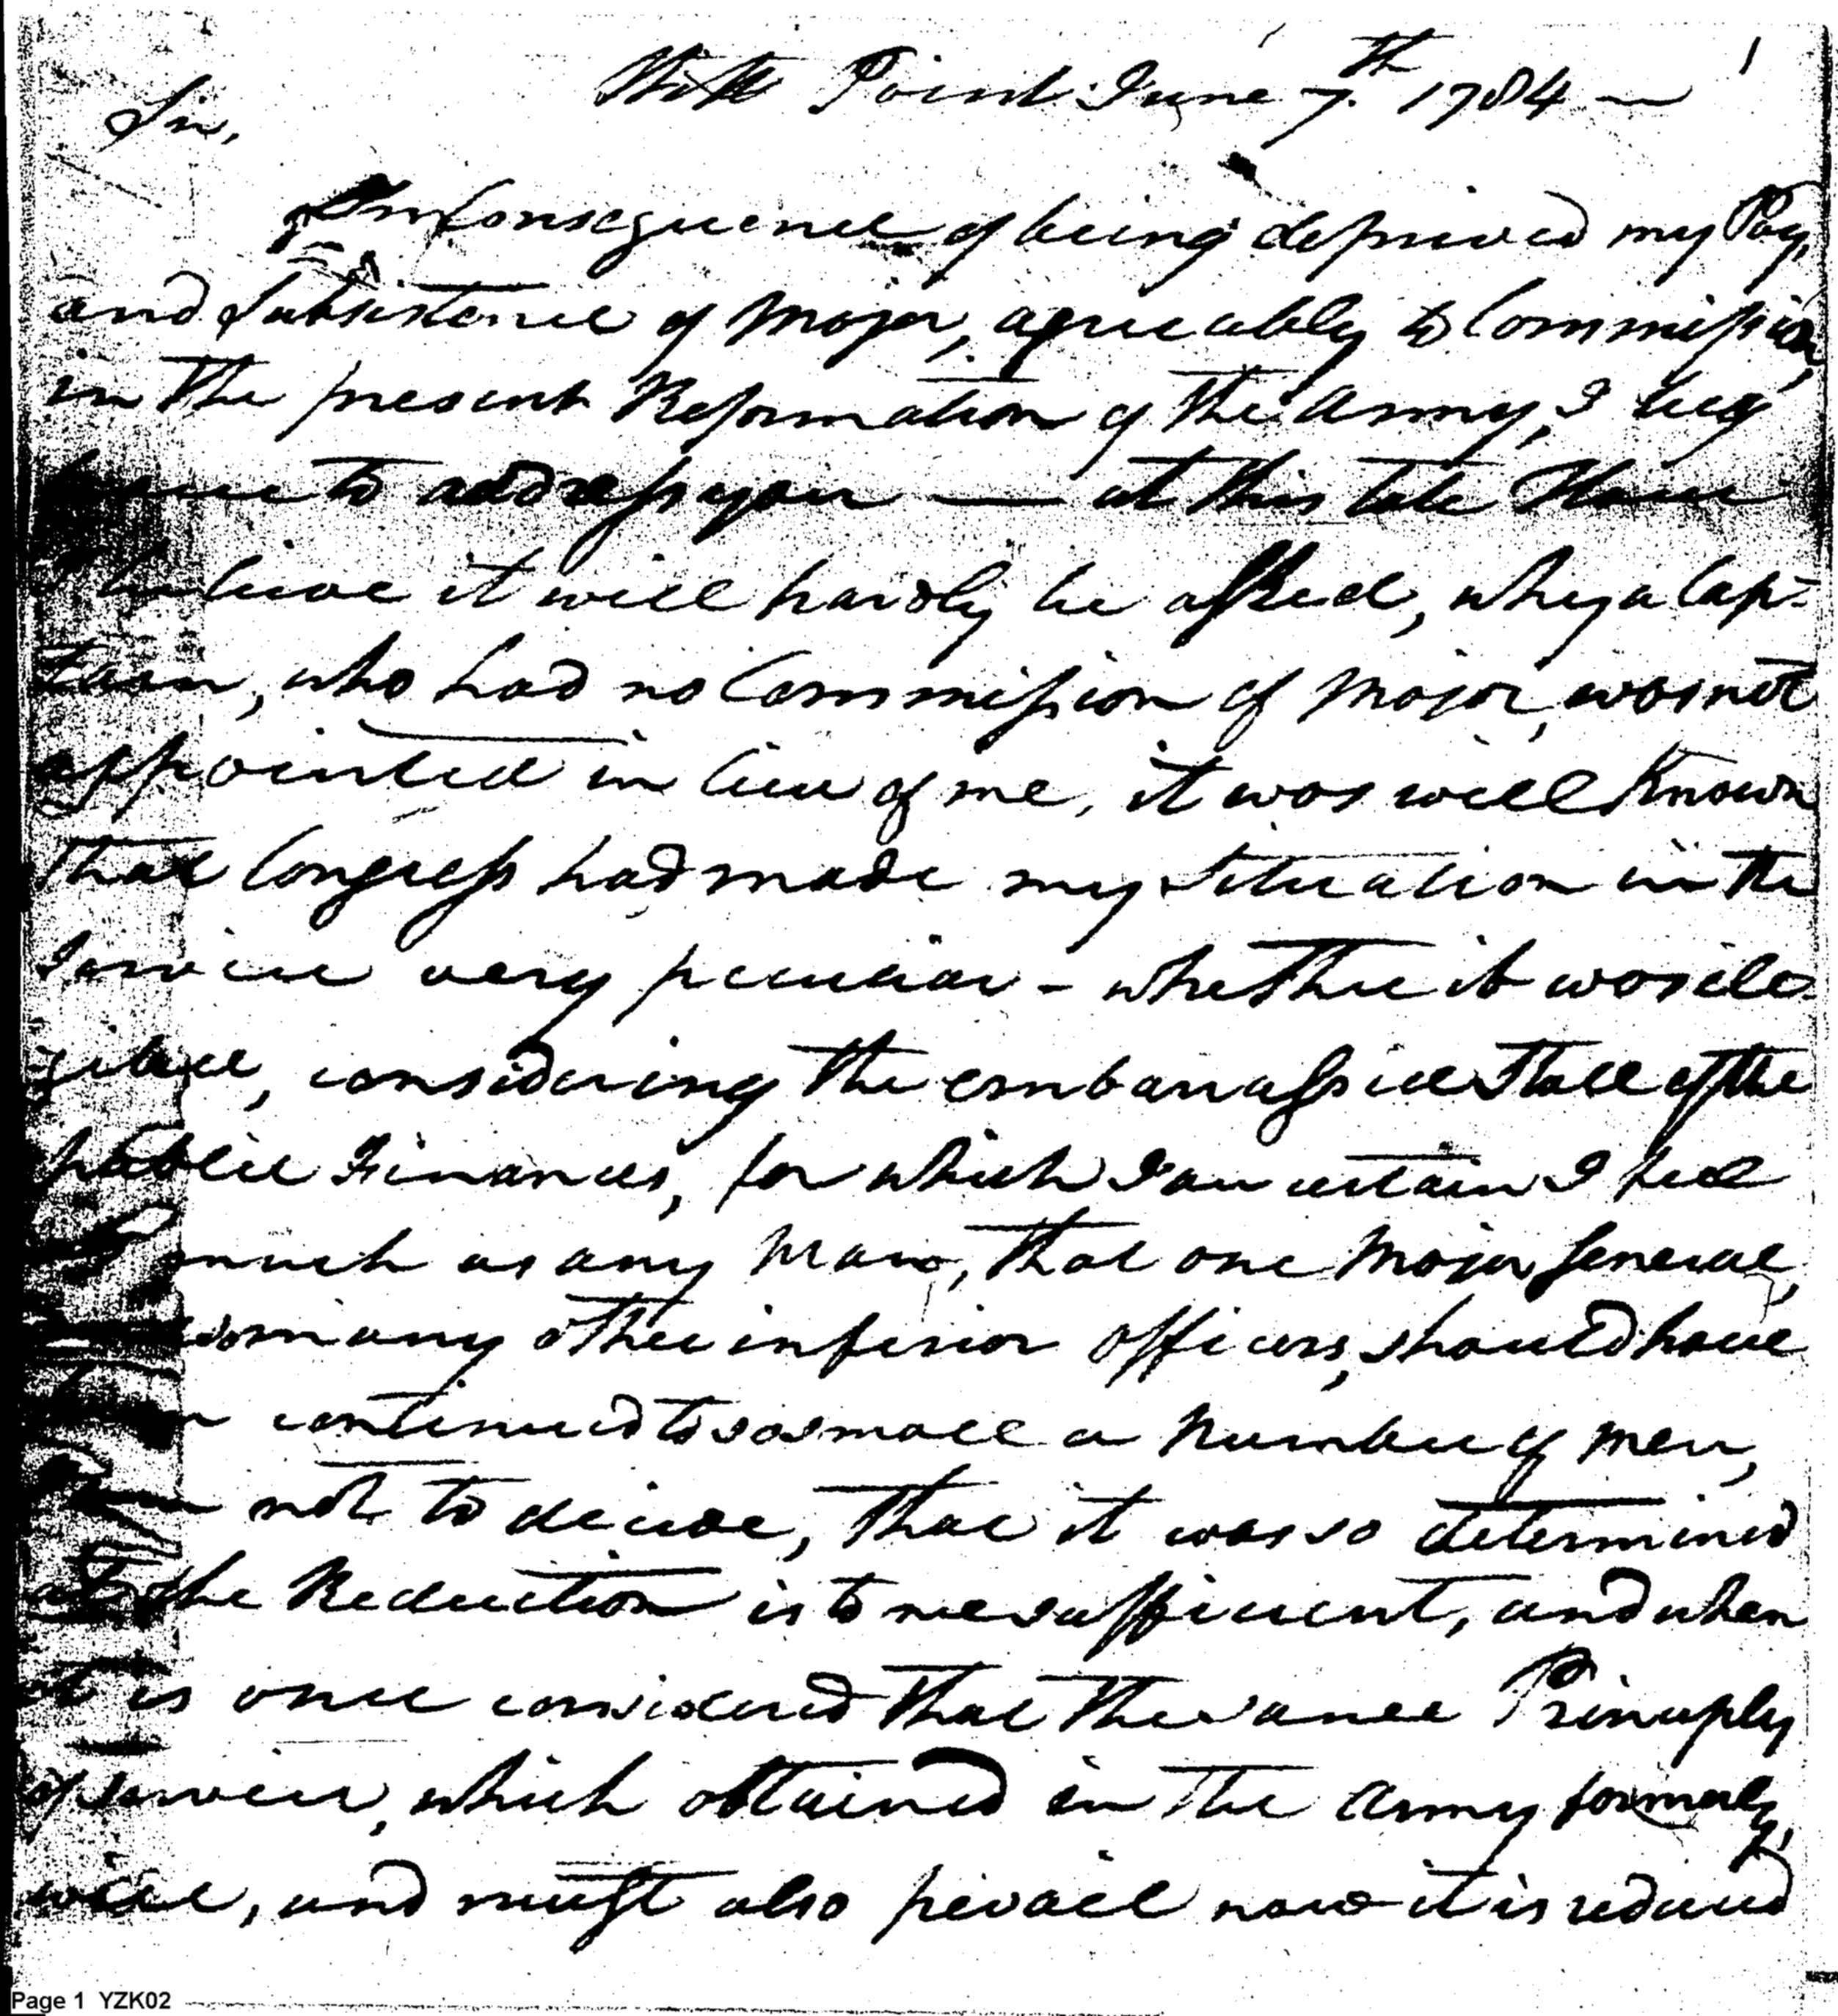 West Point June 7th 1784 —
1
Sir,
In Consequence of being deprived my Pay,
and Subsistence of Major, agreeably to Commission,
in the present Reformation of the Army, I beg
leave to address you — at this late Hour
I believe it will hardly be asked, why a Cap-
tain, who had no Commission of Major, was not
appointed in lieu of me, it was well known
that Congress had made my Situation in the
Service very peculiar - whether it was ele-
gible, considering the embarrassed State of the
public Finances, for which I am certain I feel
much as any Man, that one Major General,
so many other inferior officers, should have
continued to so small a Number of Men,
not to decide, that it was so determined
at the Reduction is to me sufficient, and when
it is once considered that the same Principly
of service, which obtained in the Army formerly,
will, and must also prevail now it is reduced
Page 1 YZK02